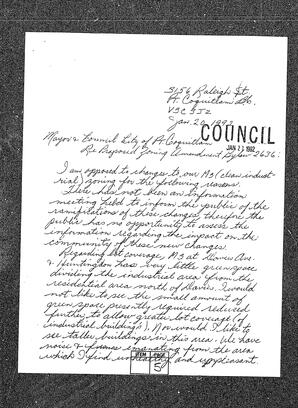 5156 Raleigh St
Pt. Coquitlam B.C.
V3C 5J2
Jan. 20 1992
COUNCIL
JAN 27 1992
Mayor & Council City of Pt. Coquitlam
Re Proposed Zoning Amendment Bylaw 2636:
I am opposed to changes to our M3 (clean indust-
rial) zoning for the following reasons.
There has not been an information
meeting held to inform the public of the
ramifications of these changes therefore the
public has no opportunity to assess the
information regarding the impact on the
community of these new changes.
Regarding lot coverage, M3 at Davies Ave
& has very little greenspace
dividing the industrial area from the
residential area north of Davies. I would
not like to see the small amount of
green space presently required reduced
further to allow greater lot coverage (of
industrial buildings). Nor would I like to
see taller buildings in this area. We have
noise & fumes emanating from the area
which I find unhealthy and unpleasant.
ITEM PAGE
5